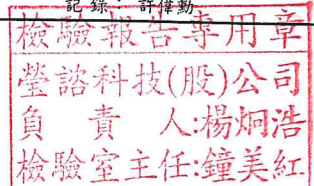 記錄：許偉勳
檢驗報告專用章
瑩諮科技(股)公司
負責人:楊炯浩
檢驗室主任:鐘美紅